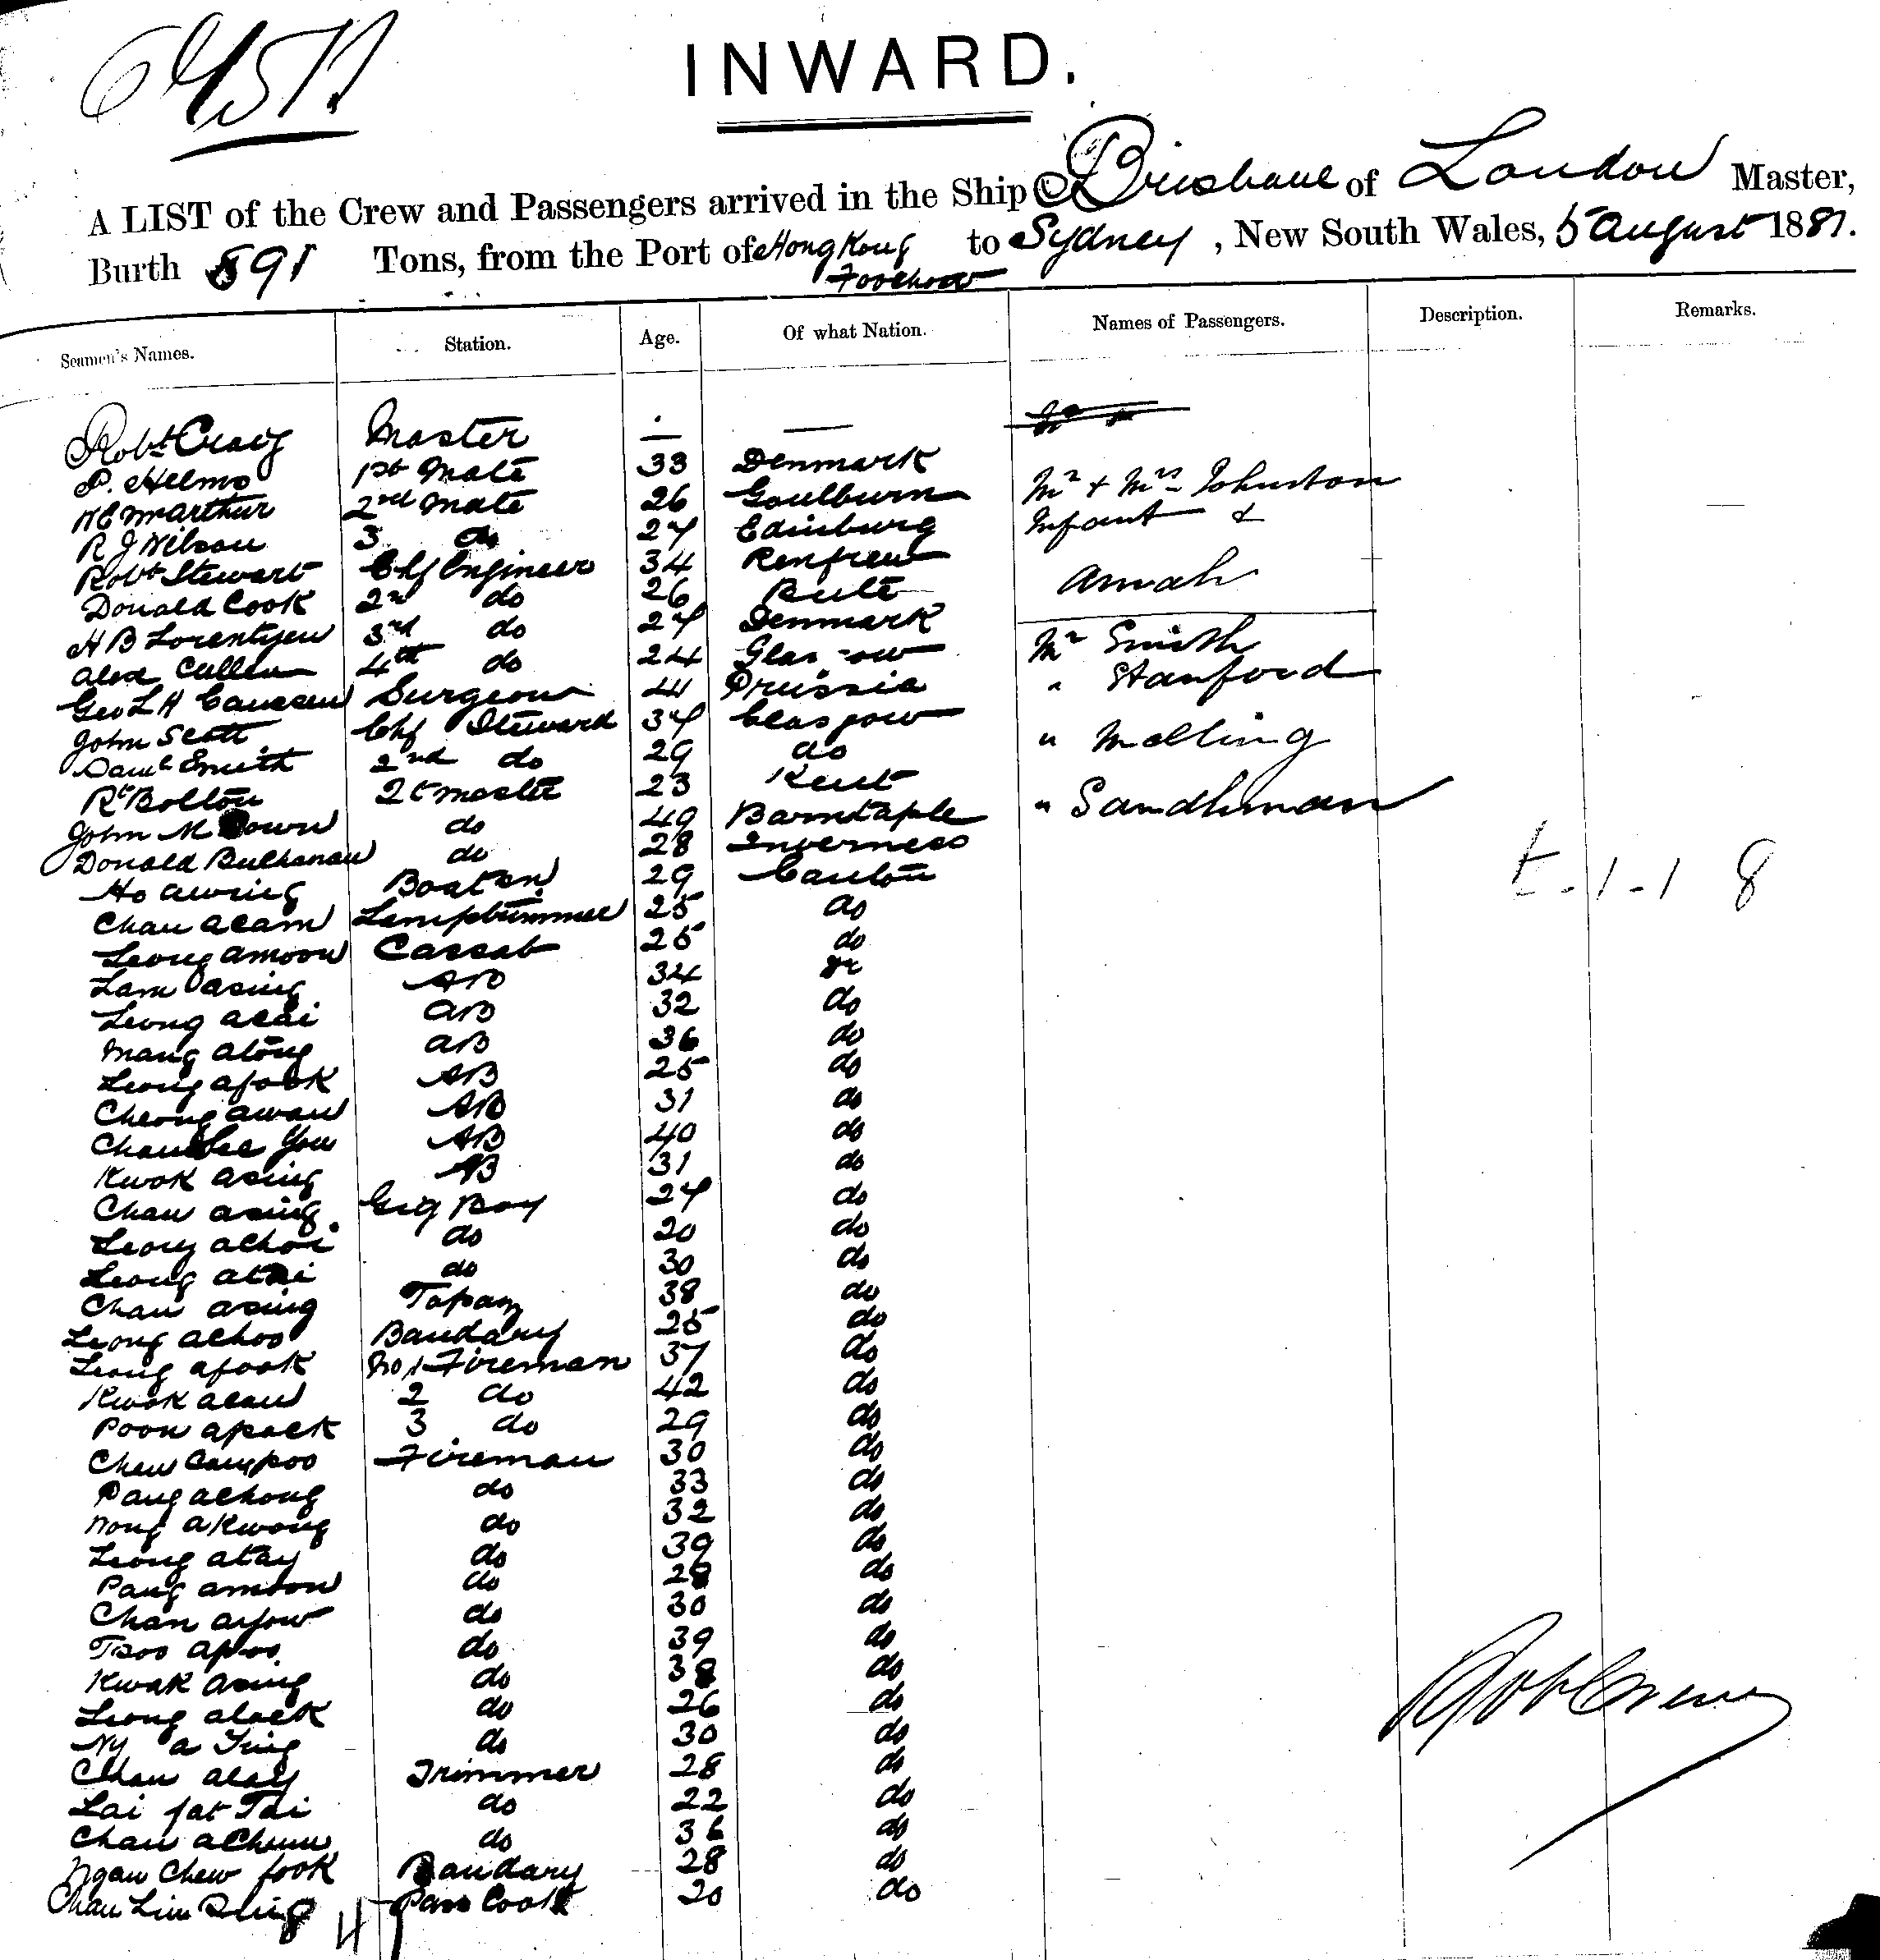 INWARD.
A LIST of the Crew and Passengers arrived in the Ship Brisbane of London Master,
Burth 891 Tons, from the Port of Hong Kong to Sydney, New South Wales, 5 August 1881.
Foochow
Seamen's Names. Station. Age. Of what Nation. Names of Passengers. Description. Remarks.
Robt Craig Master — —
P. Helms 1st Mate 33 Denmark
W E McArthur 2nd Mate 26 Goulburn Mr & Mrs Johnston
R J Wilson 3 do 27 Edinburg Infant &
Robt Stewart Chf Engineer 34 Renfrew
Donald Cook 2nd do 26 Bute Amah
H B Lorentzen 3rd do 27 Denmark
Alex Cullen 4th do 24 Glasgow Mr Smith
Geo L H Surgeon Prussia " Stanford
John Scott Chf Steward 37 Glasgow
Danl Smith 2nd do 29 do " Melling
Rt Bolton Qt master 23 Kent
John M do 49 Barnstaple " Sandhman
Donald Buchanan do 28 Inverness
Ho Awing 29 Canton
Chau Acam Lamptrimmer 25 do
Leong Amoon Cassab 25 do
Lam Asing AB 34 do
Leong Acai AB 32 do
Mang Atong AB 36 do
Leong Afook AB 25 do
Cheong Awan AB 31 do
Chau See You AB 40 do
Kwok Asing AB 31 do
Chau Asing Gig Boy 27 do
Leong Achoi do 20 do
Leong Atai do 30 do
Chau Asing Topaz 38 do
Leong Achoo Bandary 25 do
Leong Afook No 1 Fireman 37 do
Kwok Acan 2 do 42 do
Poon Apack 3 do 29 do
Chew Campoo Fireman 30 do
Pang Achong do 33 do
Wong Akwong do 32 do
Leong Atay do 39 do
Pang Amoon do 28 do
Chan Ayow do 30 do
Tsoo Apoo do 39 do
Kwak Asing do 38 do
Leong Alock do 26 do
Ny A Ting do 30 do
Chau Acay Trimmer 28 do
Lai fat Tai do 22 do
Chau Achuu do 36 do
Ngau Chew fook Bandary 28 do
Chau Lim Pass Cook 20 do